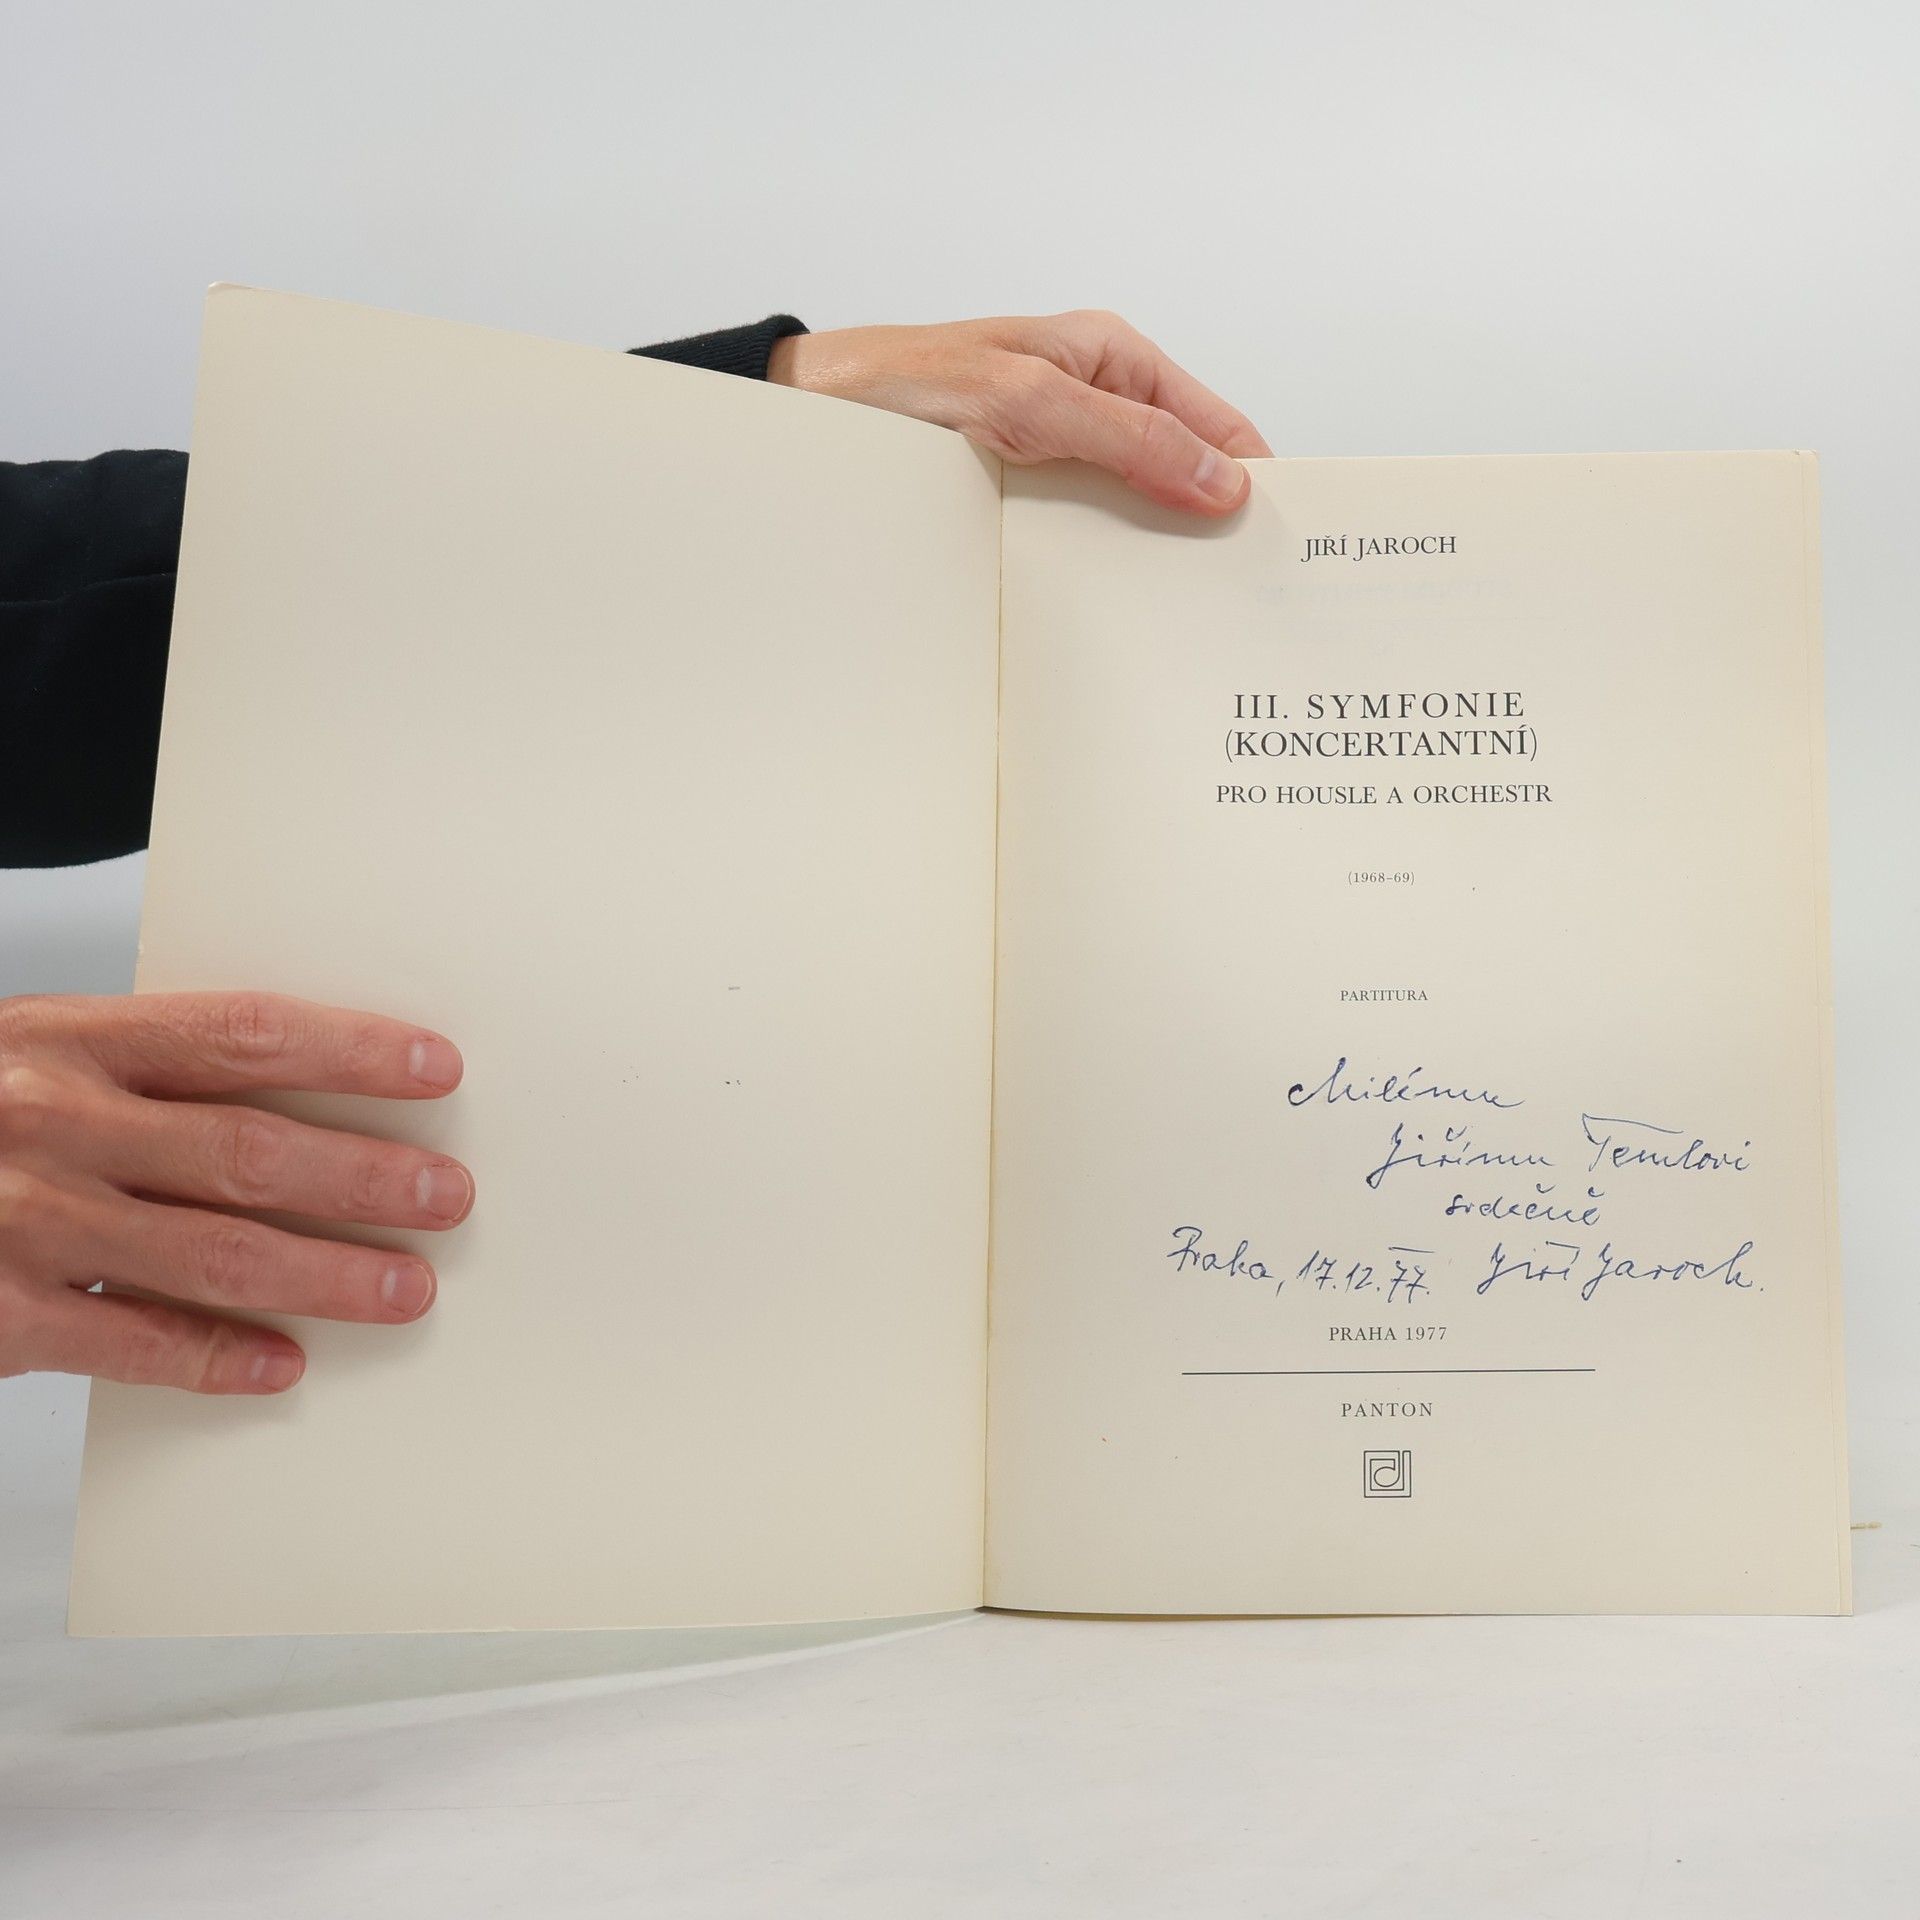 JIŘÍ JAROCH
III. SYMFONIE
(KONCERTANTNÍ)
PRO HOUSLE A ORCHESTR
(1968–69)
PARTITURA
Milému
Jiřímu Temlovi
srdečně
Praha, 17.12.77. Jiří Jaroch.
PRAHA 1977
PANTON